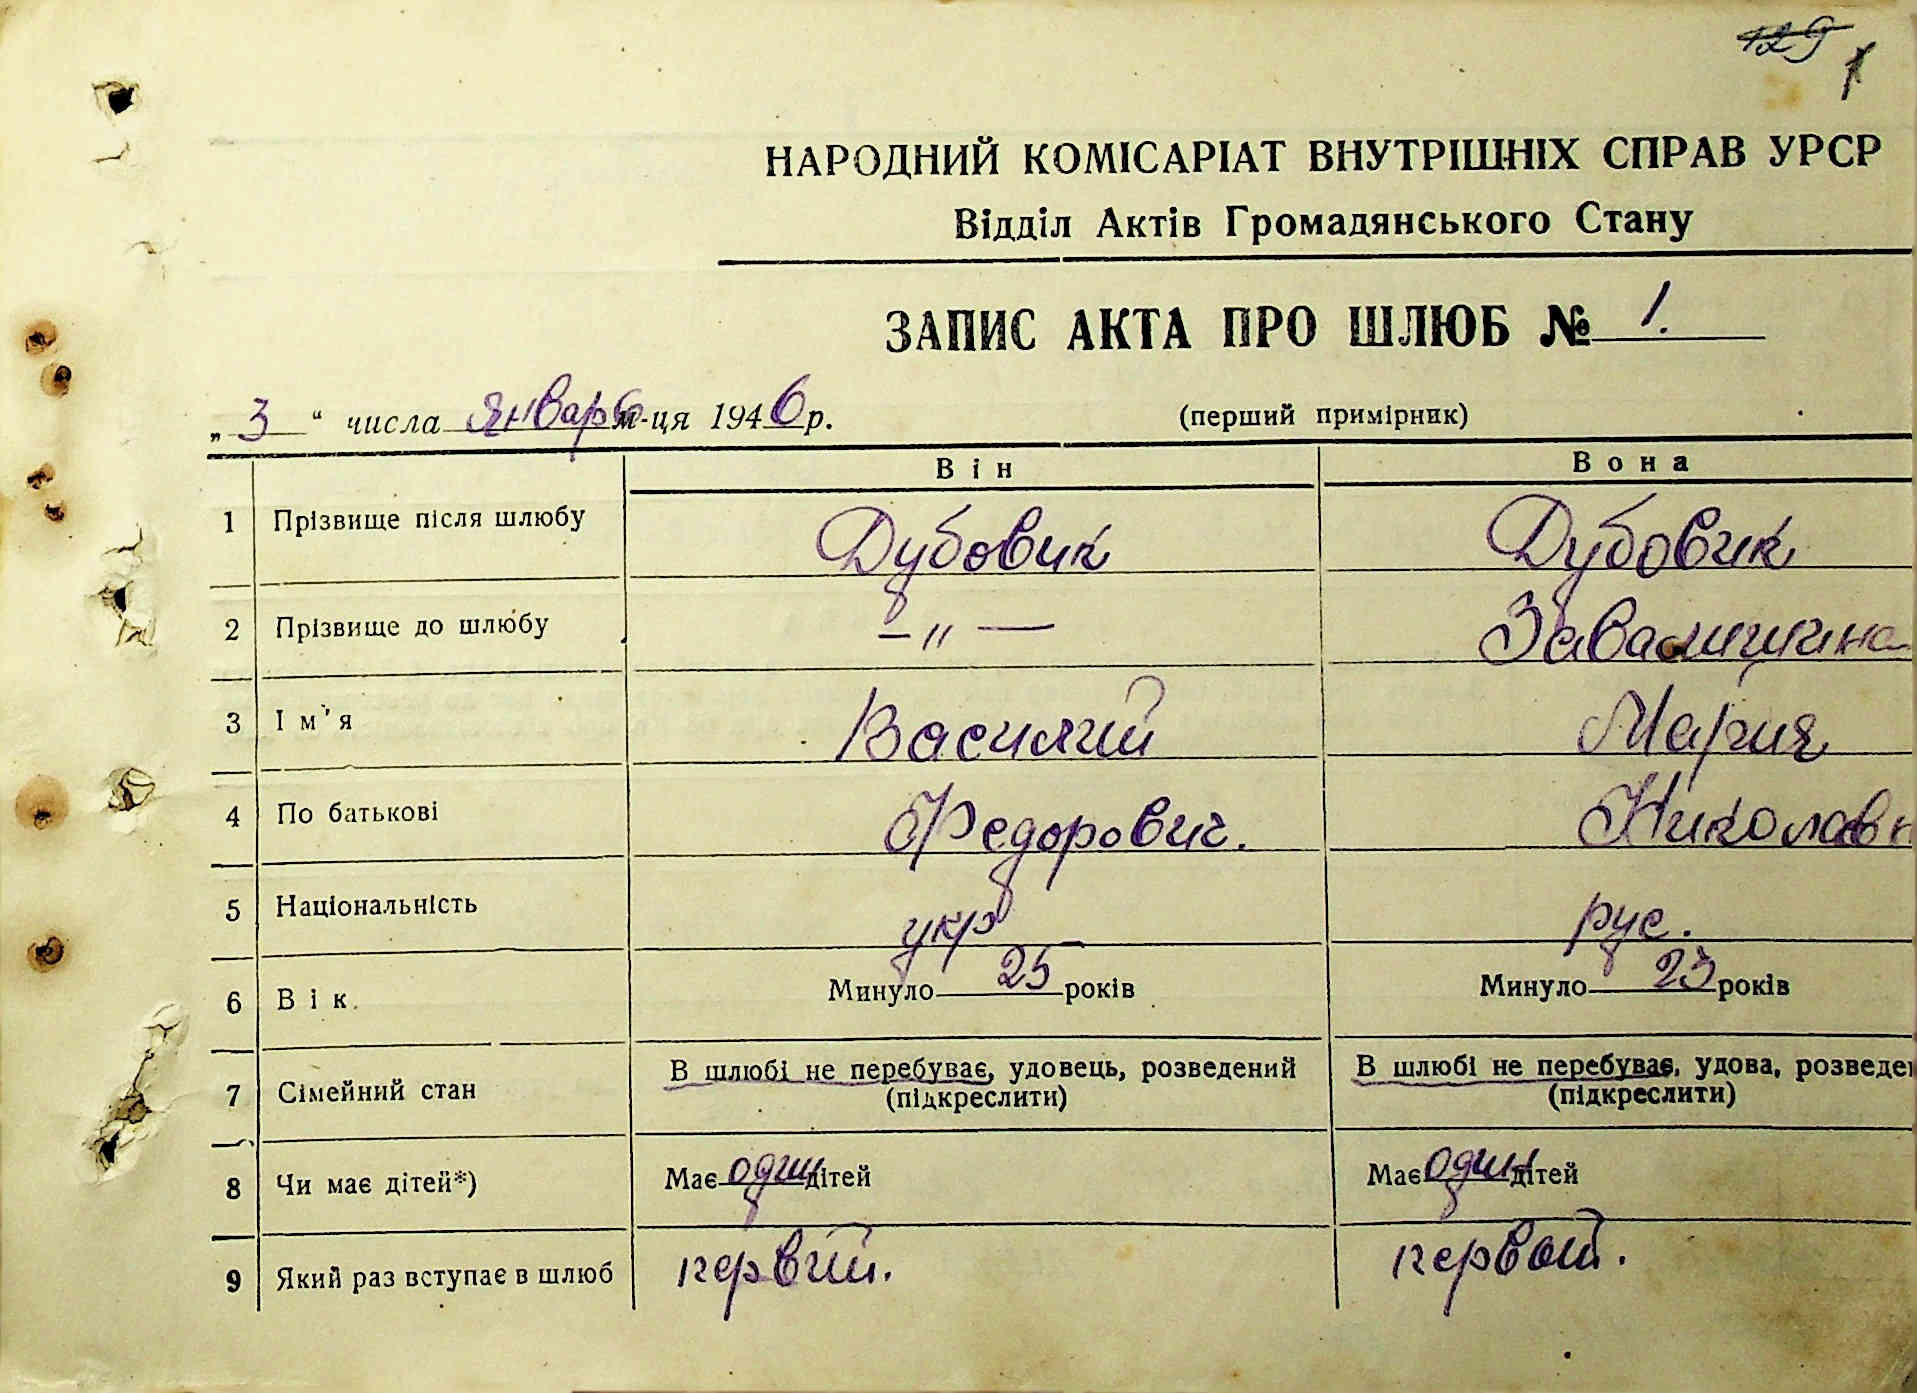 129 1
НАРОДНИЙ КОМІСАРІАТ ВНУТРІШНІХ СПРАВ УРСР
Відділ Актів Громадянського Стану
ЗАПИС АКТА ПРО ШЛЮБ № 1.
„ 3 “ числа январь м-ця 1946 р. (перший примірник)
Він Вона
1 Прізвище після шлюбу Дубовик Дубовик
2 Прізвище до шлюбу — " — Завалишина
3 Ім'я Василий Мария
4 По батькові Федорович. Николавн
5 Національність укр рус.
6 Вік. Минуло 25 років Минуло 23 років
7 Сімейний стан В шлюбі не перебуває, удовець, розведений В шлюбі не перебуває, удова, розведен
(підкреслити) (підкреслити)
8 Чи має дітей*) Має один дітей Має один дітей
9 Який раз вступає в шлюб первий. первой.